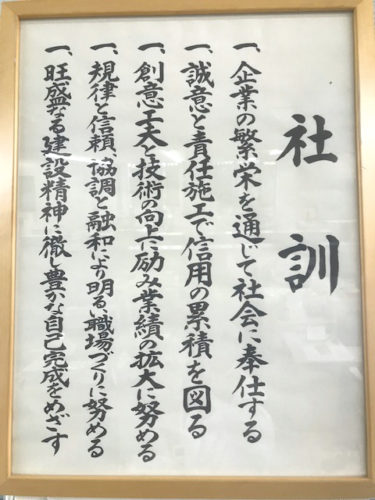 社訓
一、企業の繁栄を通じて社会に奉仕する
一、誠意と責任施工で信用の累積を図る
一、創意工夫と技術の向上に励み業績の拡大に努める
一、規律と信頼、協調と融和により明るい職場づくりに努める
一、旺盛なる建設精神に徹し豊かな自己完成をめざす